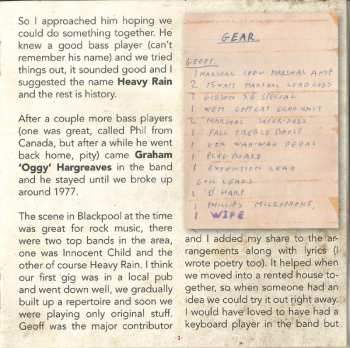 So I approached him hoping we
could do something together. He
knew a good bass player (can't
remember his name) and we tried
things out, it sounded good and I
suggested the name Heavy Rain
and the rest is history.
After a couple more bass players
(one was great, called Phil from
Canada, but after a while he went
back home, pity) came Graham
'Oggy' Hargreaves in the band
and he stayed until we broke up
around 1977.
The scene in Blackpool at the time
was great for rock music, there
were two top bands in the area,
one was Innocent Child and the
other of course Heavy Rain. I think
our first gig was in a local pub
and went down well, we gradually
built up a repertoire and soon we
were playing only original stuff.
Geoff was the major contributor
GEAR.
GEOFF.
1 MARSHAL 100W MARSHAL AMP
2
2 GIBSON SG SPECIAL
1 WEM COPYCAT ECHO UNIT
2 MARSHAL
1 TREBLE BOOST
1 VOX WAH-WAH PEDAL
1 PEDAL BOARD
1 EXTENSION LEAD
LEADS
1 HARP
1 PHILLIPS MICROPHONE
1 WIFE
and I added my share to the ar-
rangements along with lyrics (I
wrote poetry too). It helped when
we moved into a rented house to-
gether, so when someone had an
idea we could try it out right away.
I would have loved to have had a
keyboard player in the band but